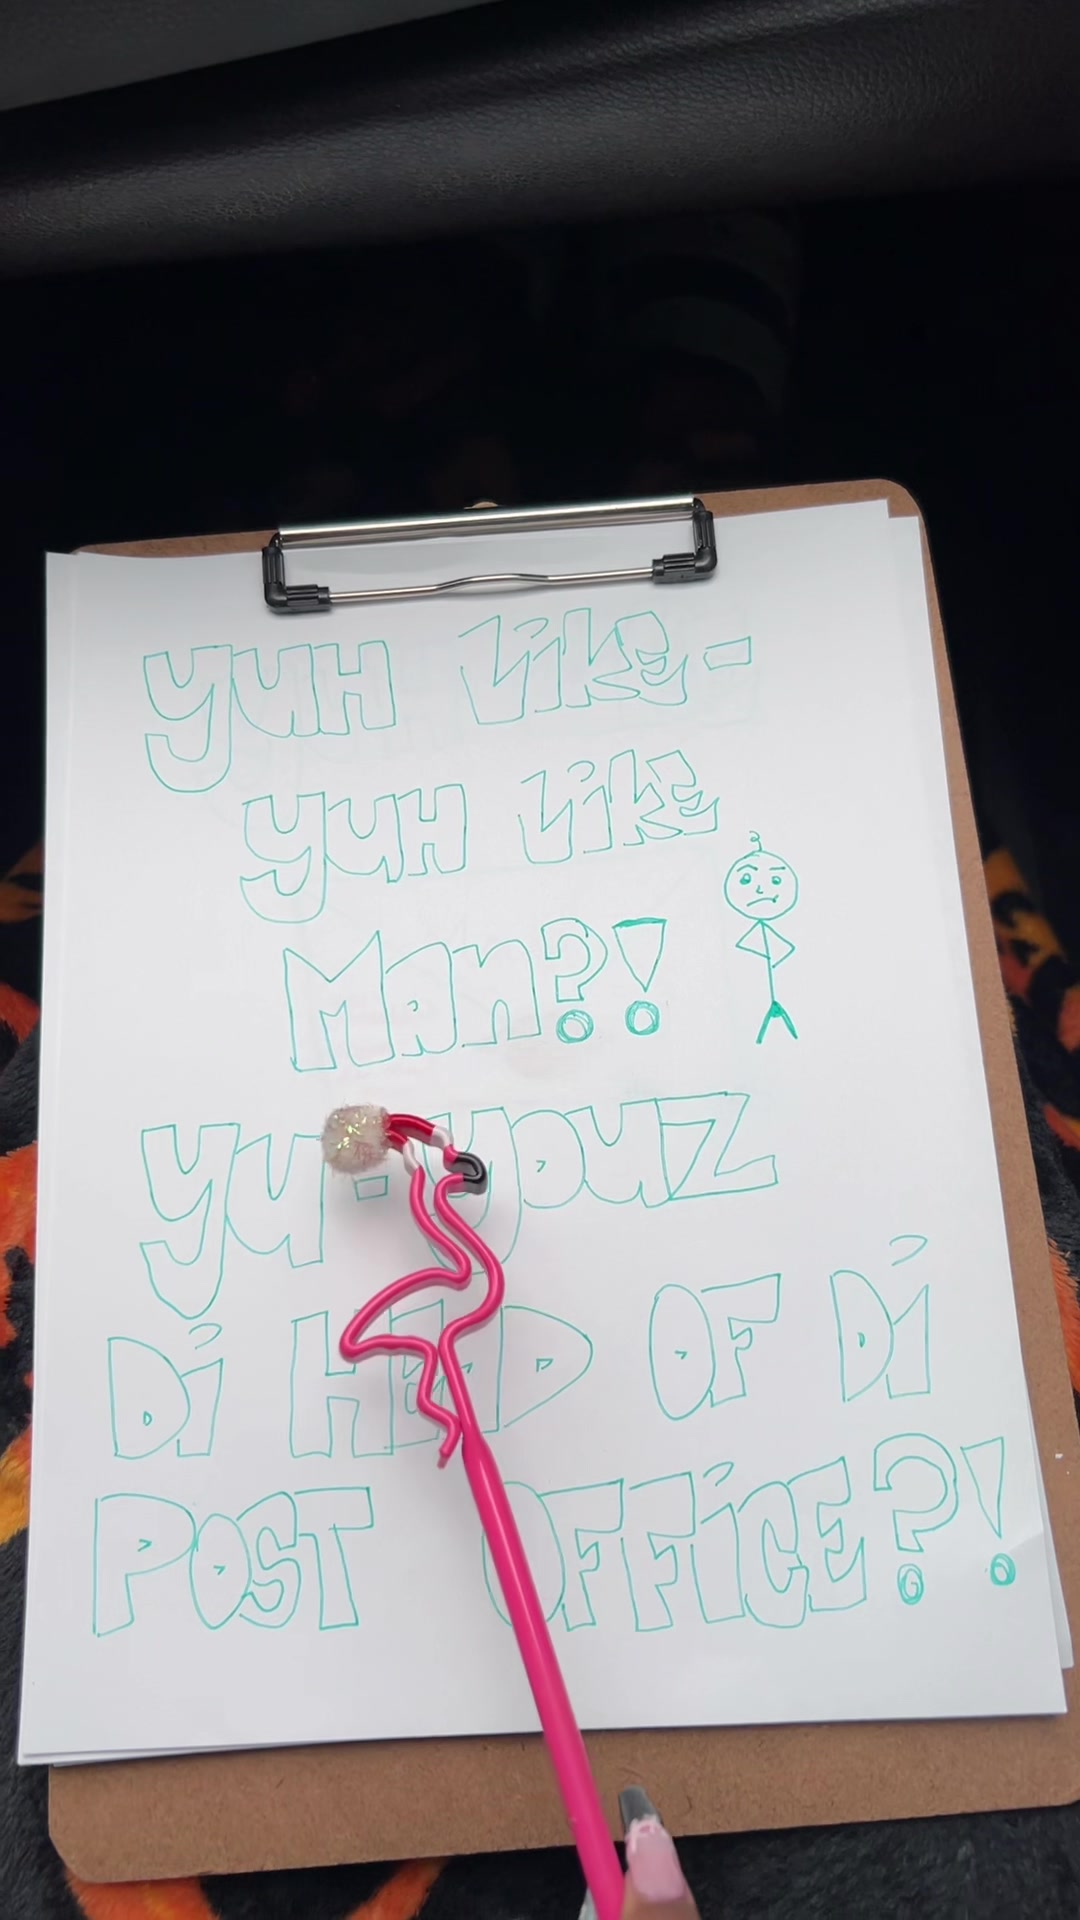 yuH like-
yuH like
Man?!
yu-youz
Di HEAD OF Di
POST OFFiCE?!